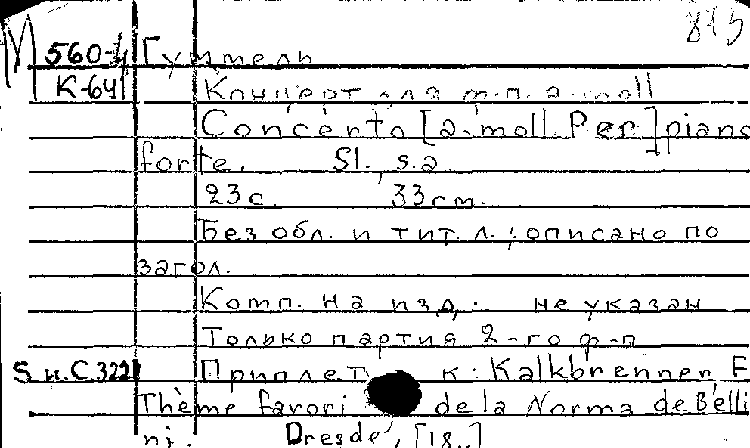 873
М 560-4 Гуммель
К-641 Концерт для ф.п. a-moll
Concerto [a-moll. Per] piano
forte. Sl., s.a
23 с. 33 см.
Без обл. и тит. л.; описано по
загол.
Комп. на изд. не указан
Только партия 2-го ф-п
S.н.С.322 Приплет к: Kalkbrenner, F
Thème favori de la Norma de Belli
ni. Dresde, [18..]